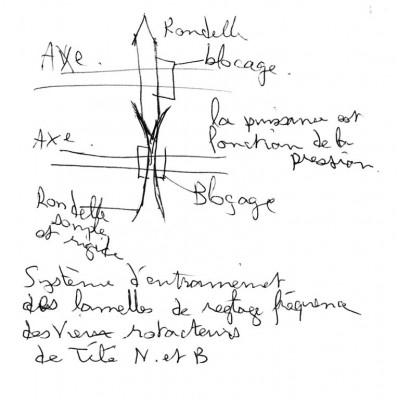 Rondelle
blocage.
Axe.
la puissance est
fonction de la
pression.
Axe.
Blocage
Rondelle
souple
et rigide
Système d'entrainement
des lamelles de reglage fréquence
des Vieux rotacteurs
de Télé N. et B